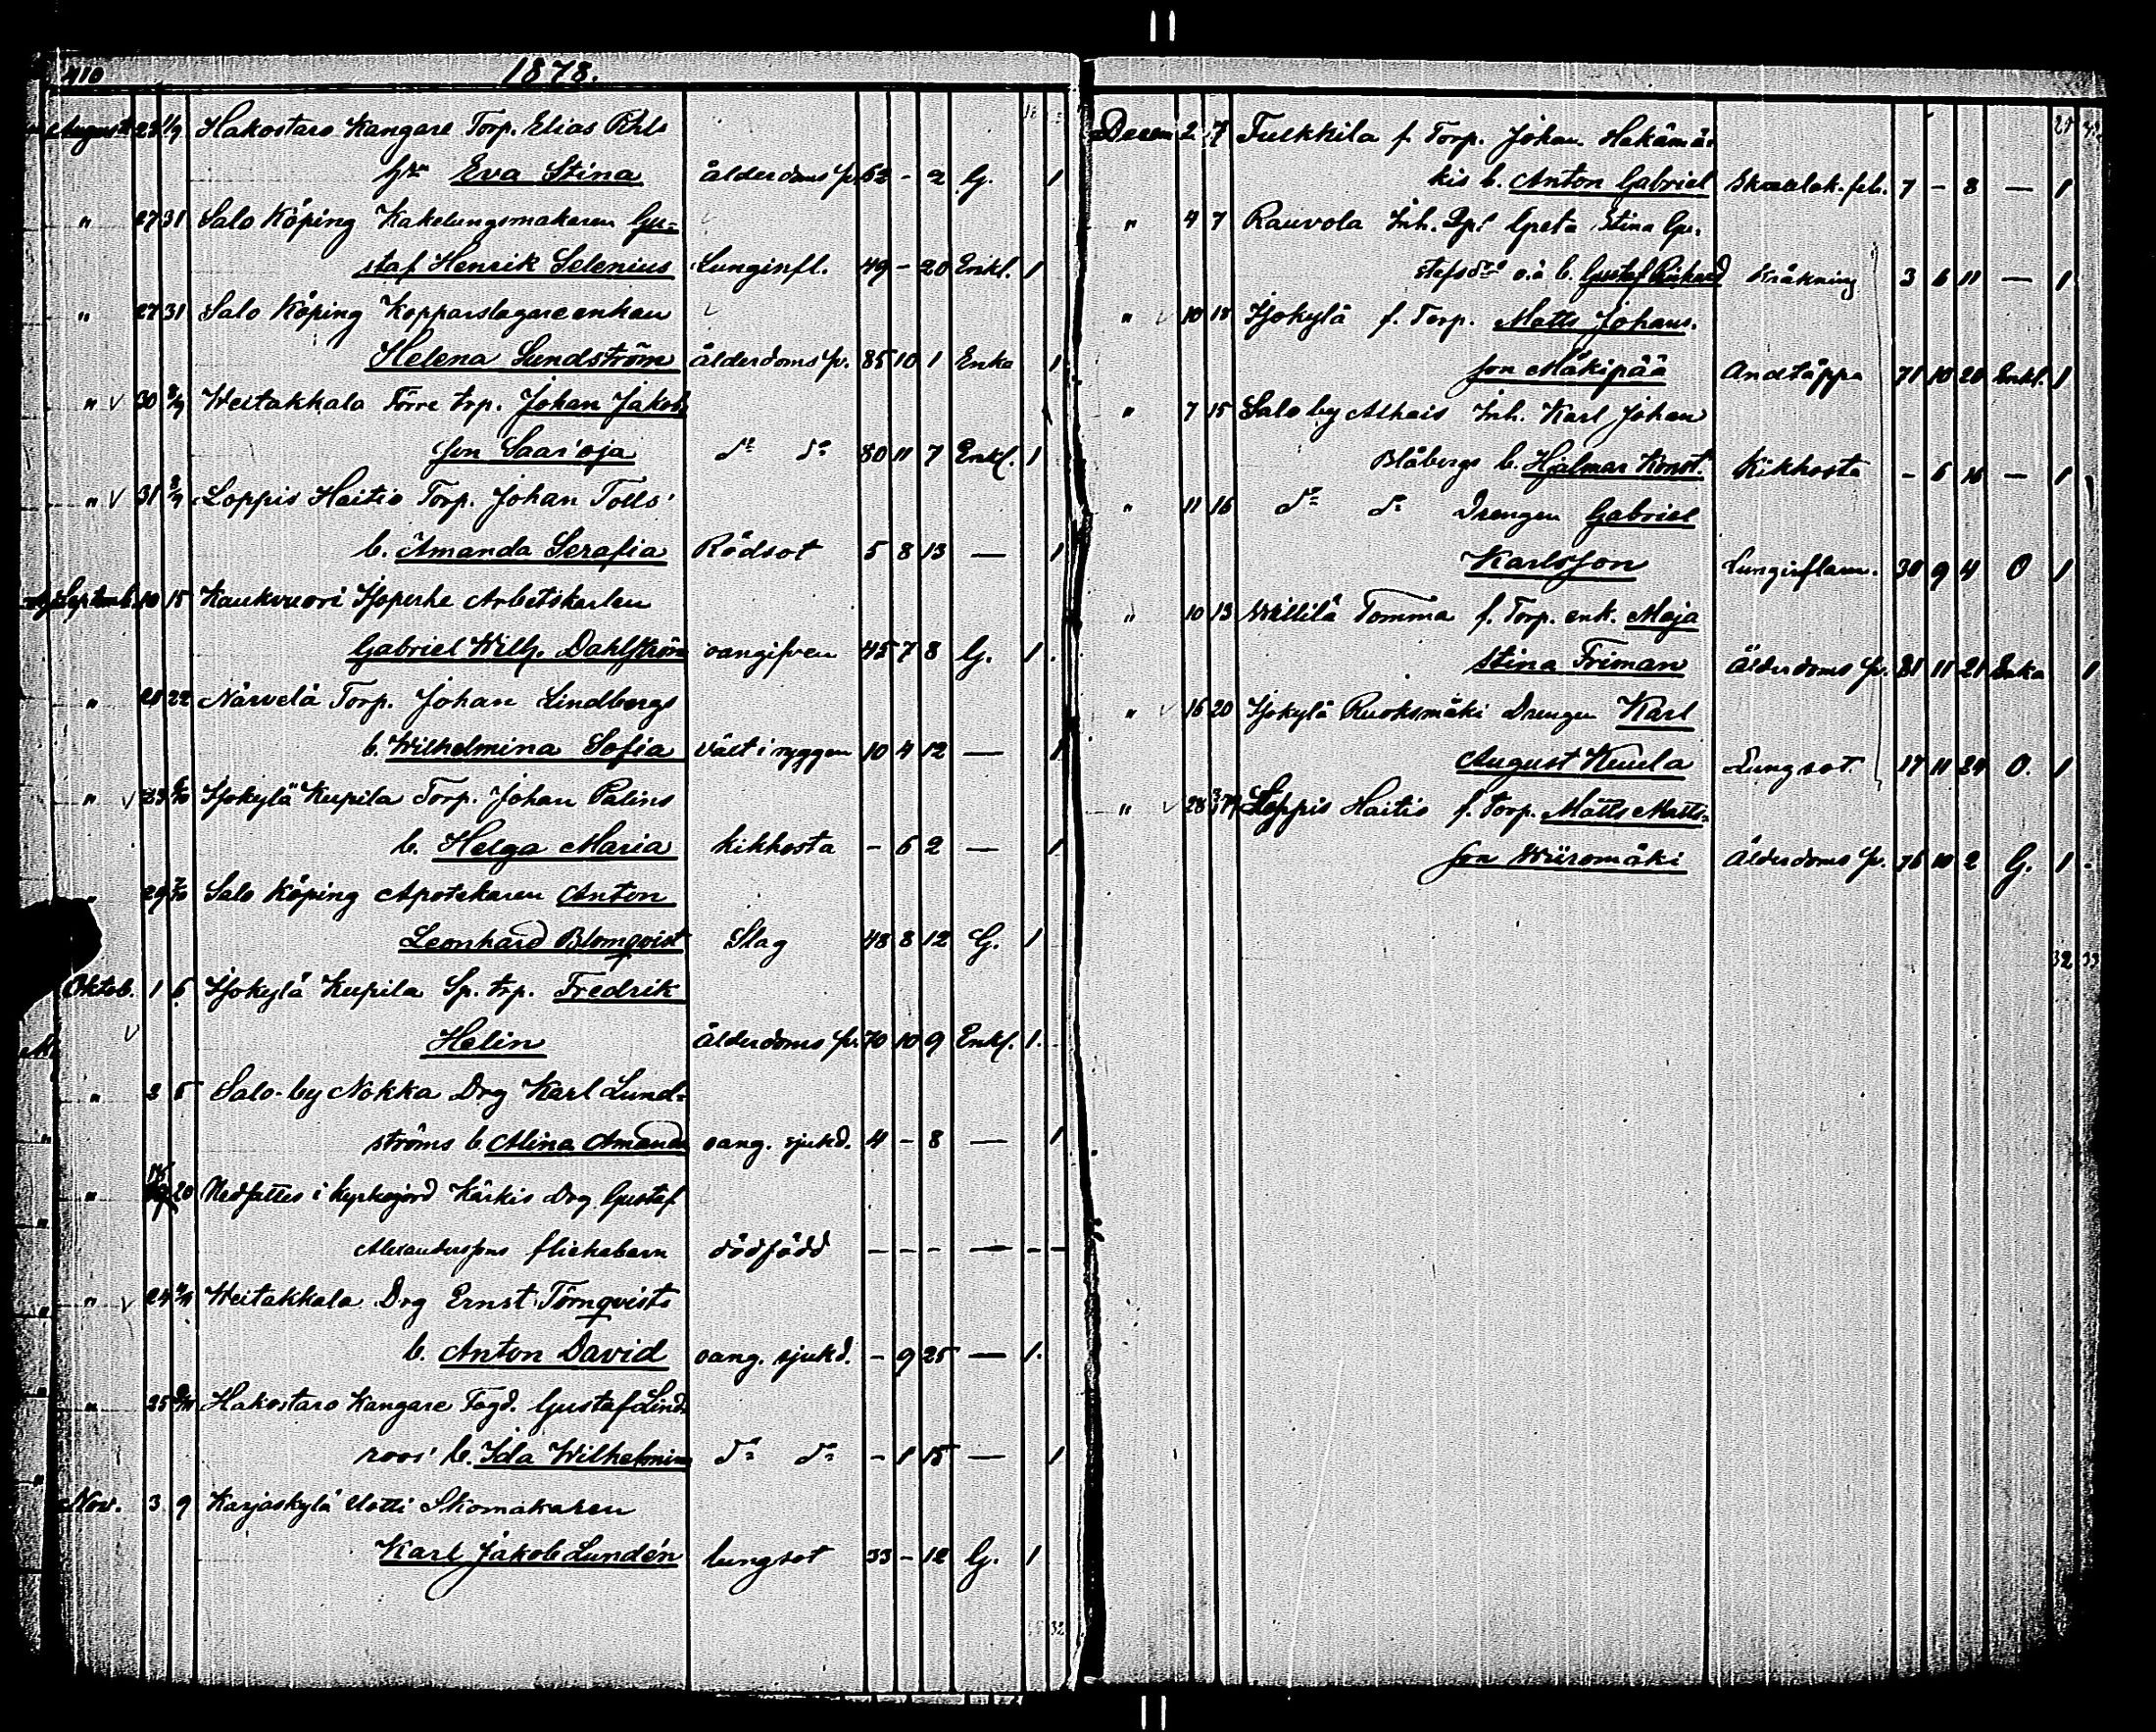 410 1878.
August 28 1/9 Hakostaro Kangare Torp. Elias Pihls
hru Eva Stina ålderdoms br. 62 - 2 G. 1
" 27 31 Salo Köping Kakelungsmakaren Gu-
staf Henrik Selenius Lunginfl. 49 - 20 Enkl. 1
" 27 31 Salo Köping Kopparslagareenkan
Helena Sundström Ålderdoms br. 85 10 1 Enka 1
" 30 8/9 Weitakkala Törre trp. Johan Jakobs
son Saar'oja do do 80 11 7 Enkl. 1
" 31 8/9 Loppis Haitio Torp. Johan Tolls'
b. Amanda Serafia Rödsot 5 8 13 — 1
Septemb. 10 15 Kaukvuori Isoperhe Arbetskarlen
Gabriel Wilh. Dahlström oangifven 45 7 8 G. 1
" 21 22 Närvelä Torp. Johan Lindbergs
b. Wilhelmina Sofia växt i ryggen 10 4 12 — 1
" Isokylä Kupila Torp. Johan Palins
b. Helga Maria kikhosta - 6 2 — 1
" 29 Salo Köping Apotekaren Anton
Leonhard Blomqvist Slag 48 8 12 G. 1
Oktob. 1 6 Isokylä Kupila Sp. trp. Fredrik
Helin Ålderdoms br. 70 10 9 Enkl. 1.
" 2 5 Salo-by Nokka Drg Karl Lund-
ströms b. Alina Amanda oang. sjukd. 4 - 8 — 1
" 20 Nedsattes i kyrkogård Kärkis Drg Gustaf
Alexanderssons flickebarn dödfödd - - - — - -
" 24 Weitakkala Drg Ernst Törnqvists
b. Anton David oang. sjukd. - 9 25 — 1.
" 25 Hakostaro Kangare Fogd. Gustaf Lind-
roos' b. Ida Wilhelmina do do - 1 15 — 1
Nov. 3 9 Karjaskylä Uotti Skomakaren
Karl Jakob Lundén lungsot 33 - 12 G. 1
32
Decem 2 7 Tulkkila f. Torp. Johan Hakämä-
kis b. Anton Gabriel Skarlak. feb. 7 - 8 — 1
" 4 7 Rauvola Inh. Greta Stina Gu-
stafsdr o.ä b. Gustaf Rikhard Kräkning 3 6 11 — 1
" 10 18 Isokylä f. Torp. Matts Johans-
son Mäkipää Andtäppa 71 10 20 Enkl. 1
" 7 15 Salo by Alhais Inh. Karl Johan
Blåbergs b. Hjalmar Konst. Kikhosta - 6 16 — 1
" 11 16 do do Drengen Gabriel
Karlsson Lunginflam. 30 9 4 O 1
" 10 13 Willilä Tomma f. Torp. enk. Maja
Stina Friman Ålderdoms br. 81 11 21 Enka 1
" 16 20 Isokylä Ruoksmäki Drengen Karl
August Kuula Lungsot. 17 11 24 O. 1
" 28 Loppis Haitio f. Torp. Matts Matts-
son Wiiromäki Ålderdoms br. 76 10 2 G. 1
32 33